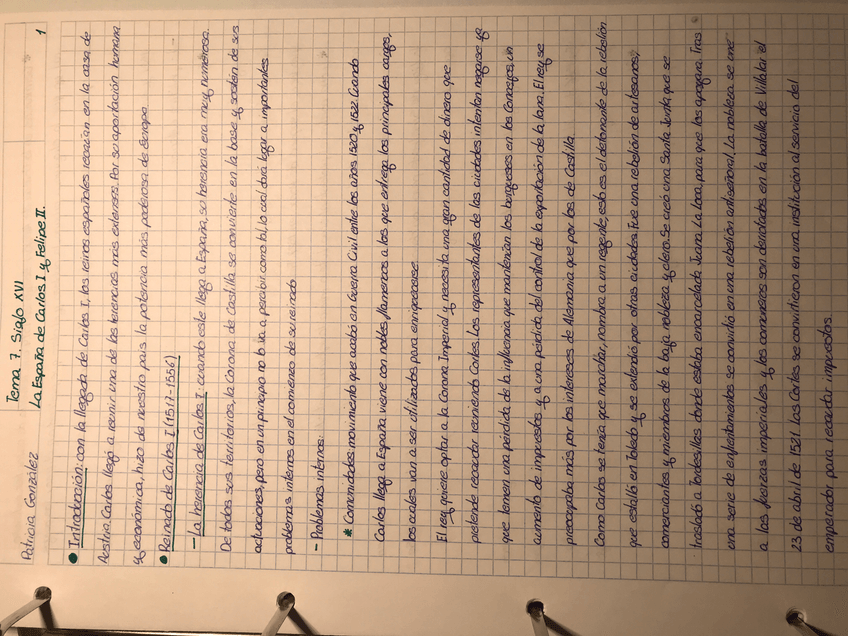 Patricia González
Tema 7. Siglo XVI
La España de Carlos I y Felipe II.
1
• Introducción: con la llegada de Carlos I, los reinos españoles recaían en la casa de
Austria. Carlos llegó a reunir una de las herencias más extensas. Por su aportación humana
y económica, hizo de nuestro país la potencia más poderosa de Europa.
• Reinado de Carlos I (1517-1556)
- La herencia de Carlos I: cuando este llega a España, su herencia era muy numerosa.
De todos sus territorios, la Corona de Castilla se convierte en la base y sostén de sus
actuaciones, pero en un principio no lo va a percibir como tal, lo cual dará lugar a importantes
problemas internos en el comienzo de su reinado
- Problemas internos:
* Comunidades: movimiento que acabó en Guerra Civil entre los años 1520 y 1522. Cuando
Carlos llega a España, viene con nobles flamencos a los que entrega los principales cargos,
los cuales van a ser utilizados para enriquecerse.
El rey quiere optar a la Corona Imperial y necesita una gran cantidad de dinero que
pretende recaudar reuniendo Cortes. Los representantes de las ciudades intentan negarse ya
que temen una pérdida de la influencia que mantenían los burgueses en los Concejos, un
aumento de impuestos y a una pérdida del control de la exportación de la lana. El rey se
preocupaba más por los intereses de Alemania que por los de Castilla.
Como Carlos se tenía que marchar, nombra a un regente, esto es el detonante de la rebelión
que estalló en Toledo y se extendió por otras ciudades. Fue una rebelión de artesanos,
comerciantes y miembros de la baja nobleza y clero. Se creó una Santa Junta que se
trasladó a Tordesillas donde estaba encarcelada Juana La Loca, para que los apoyara. Tras
una serie de enfrentamientos se convirtió en una rebelión antiseñorial. La nobleza se une
a las fuerzas imperiales y los comuneros son derrotados en la batalla de Villalar el
23 de abril de 1521. Las Cortes se convirtieron en una institución al servicio del
emperador para recaudar impuestos.